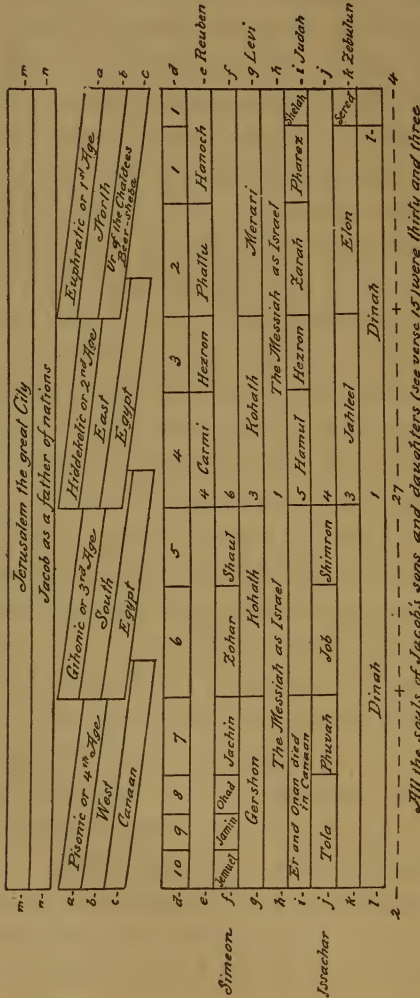 m- Jerusalem the great City -m
n- Jacob as a father of nations -n
a- Pisonic or 4th Age Gihonic or 3rd Age Hiddekelic or 2nd Age Euphratic or 1st Age -a
b- West South East North -b
c- Canaan Egypt Egypt Ur of the Chaldees -c
Beer-sheba
d- 10 9 8 7 6 5 4 3 2 1 1 -d
e- 4 Carmi Hezron Phallu Hanoch -e Reuben
Simeon f- Jemuel Jamin Ohad Jachin Zohar Shaul 6 -f
g- Gershon Kohath 3 Kohath Merari -g Levi
h- The Messiah as Israel 1 The Messiah as Israel -h
i- Er and Onan died 5 Hamul Hezron Zarah Pharez Shelah -i Judah
in Canaan
Issachar j- Tola Phuvah Job Shimron 4 -j
k- 3 Jahleel Elon Sered -k Zebulun
l- Dinah 1 Dinah l-
2 - - - - + - - - - 27 - - - - + - - - - 4
All the souls of Jacob's sons and daughters (see verse 15) were thirty and three